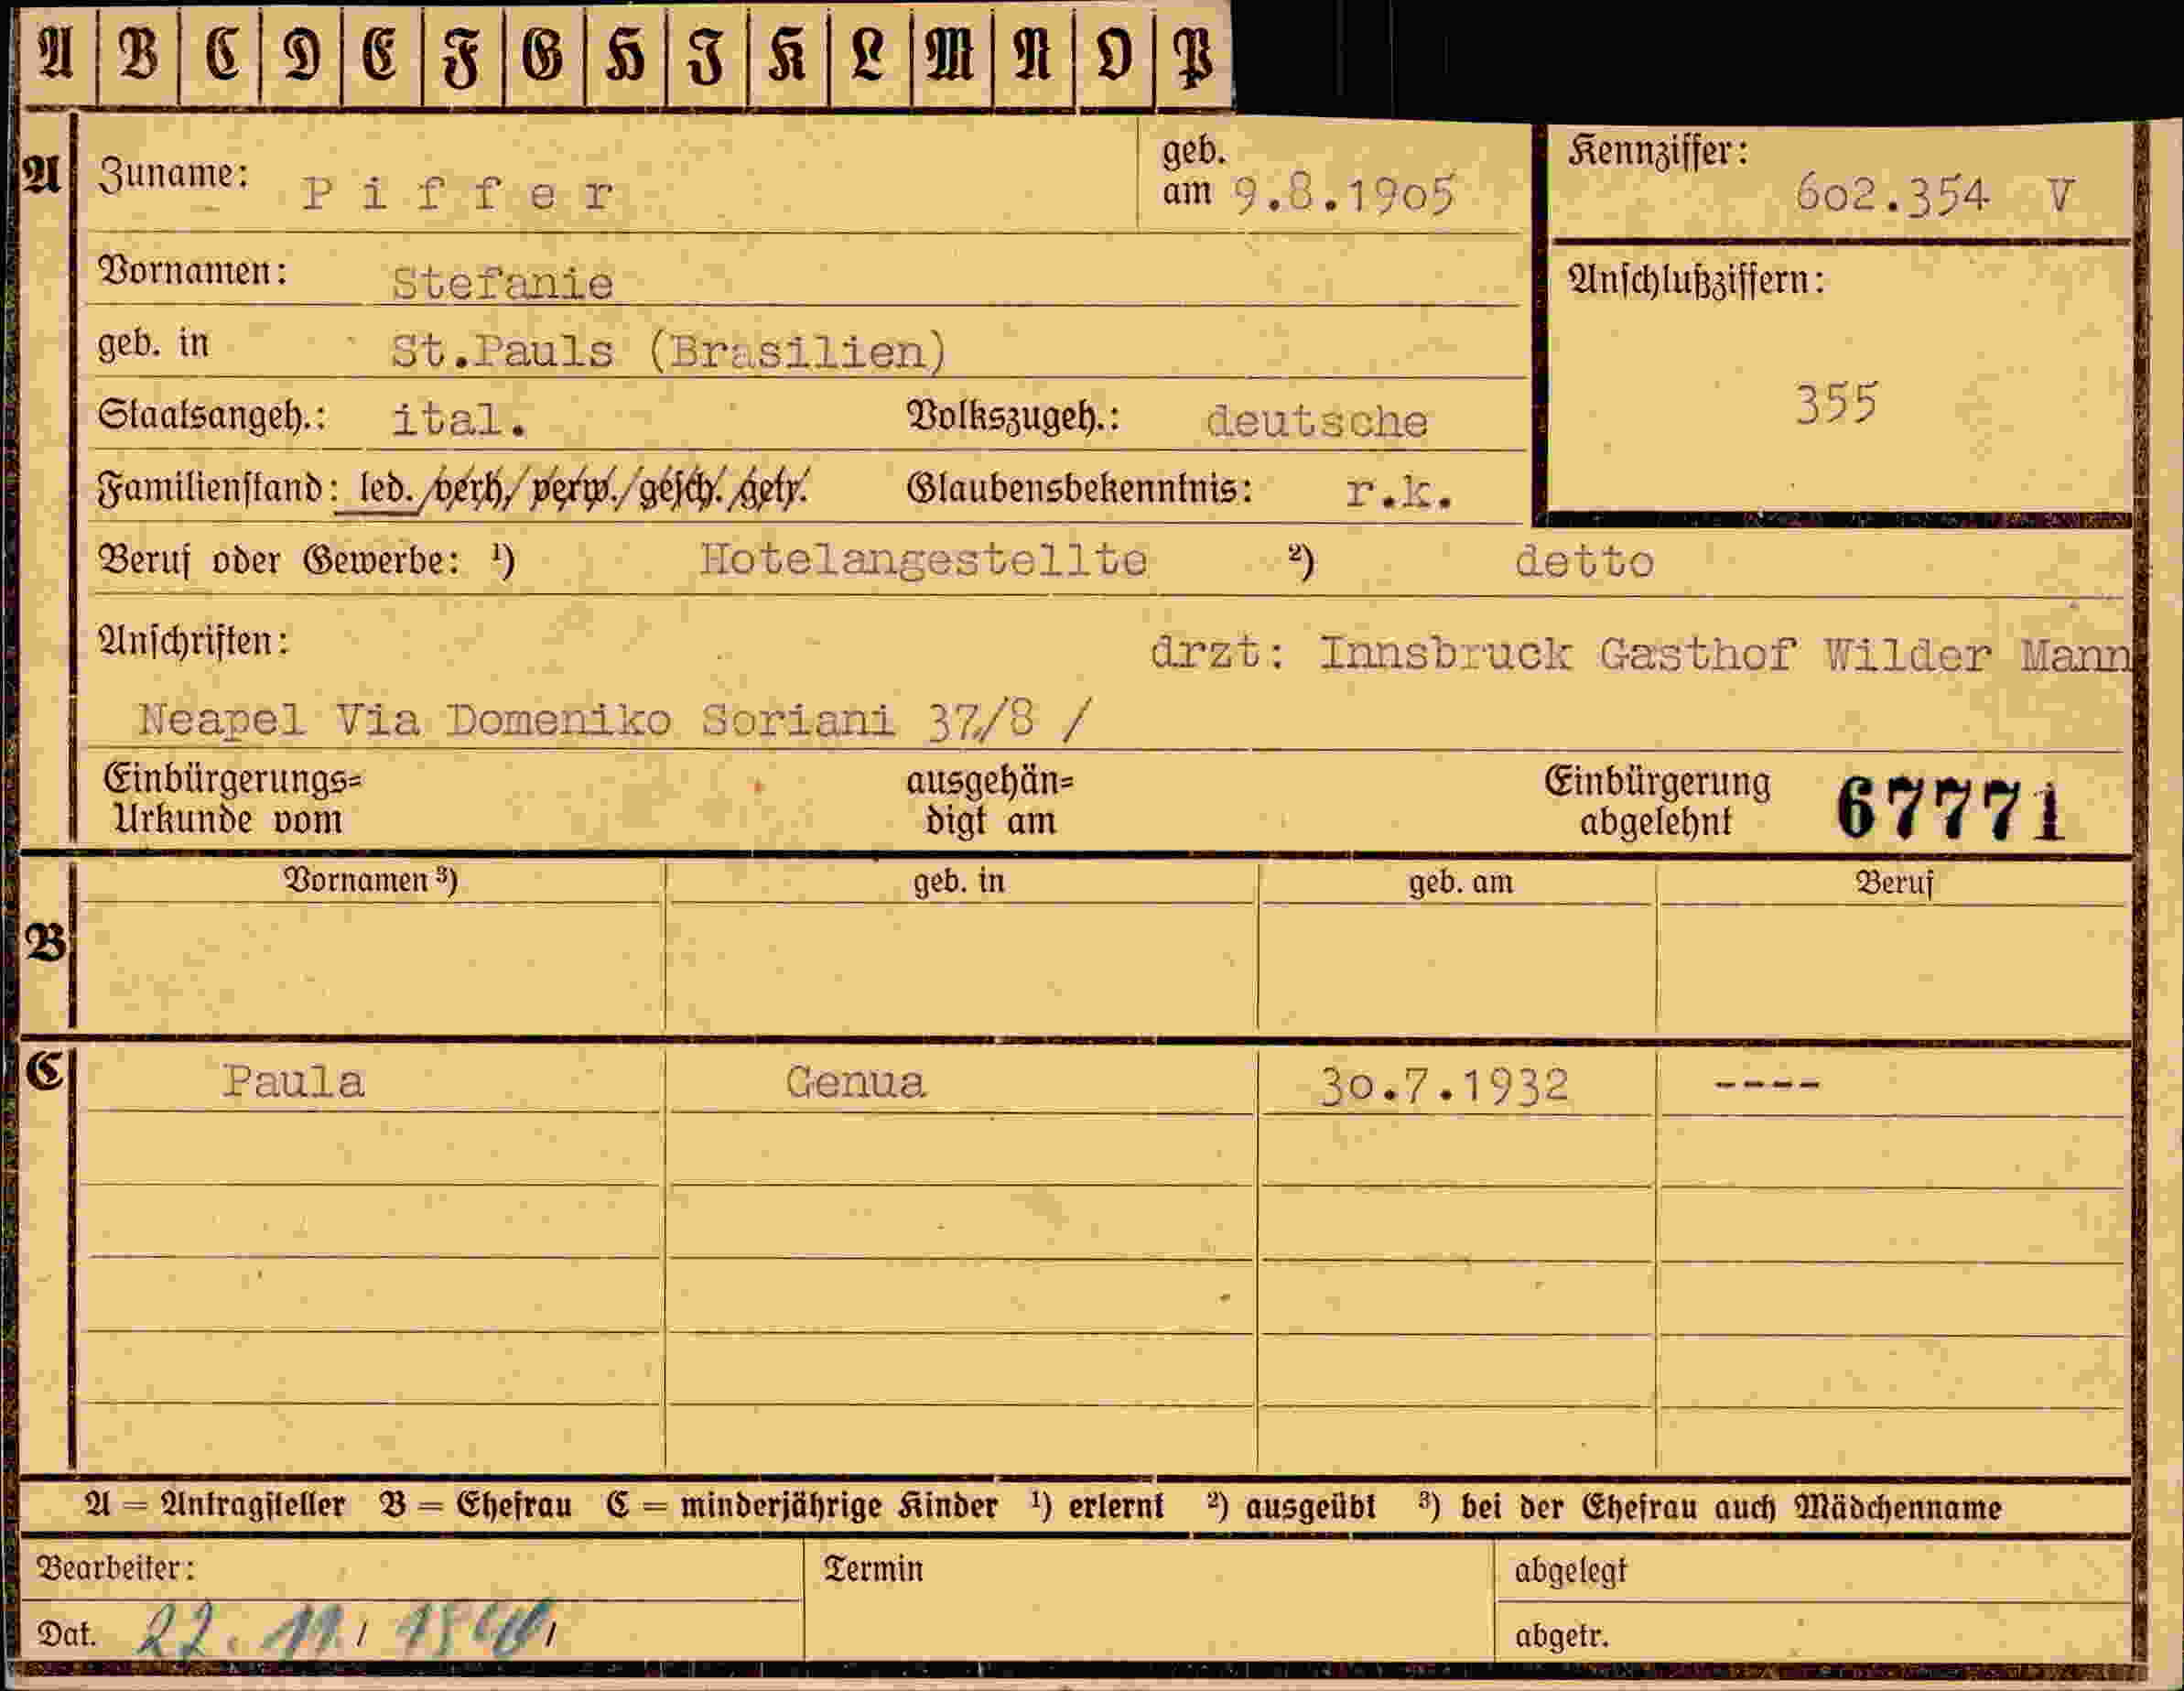 A B C D E F G H I K L M N O P
A Zuname: Piffer geb. am 9.8.1905 Kennziffer: 602.354 V
Vornamen: Stefanie Anschlußziffern:
geb. in St.Pauls (Brasilien)
355
Staatsangeh.: ital. Volkszugeh.: deutsche
Familienstand: led./verh./verw./gesch./getr. Glaubensbekenntnis: r.k.
Beruf oder Gewerbe: ¹) Hotelangestellte ²) detto
Anschriften: drzt: Innsbruck Gasthof Wilder Mann
Neapel Via Domeniko Soriani 37/8 /
Einbürgerungs= ausgehän= Einbürgerung 67771
Urkunde vom digt am abgelehnt
Vornamen ³) geb. in geb. am Beruf
B
C Paula Genua 30.7.1932 ----
A = Antragsteller B = Ehefrau C = minderjährige Kinder ¹) erlernt ²) ausgeübt ³) bei der Ehefrau auch Mädchenname
Bearbeiter: Termin abgelegt
Dat. 22. 11. 1940 abgetr.